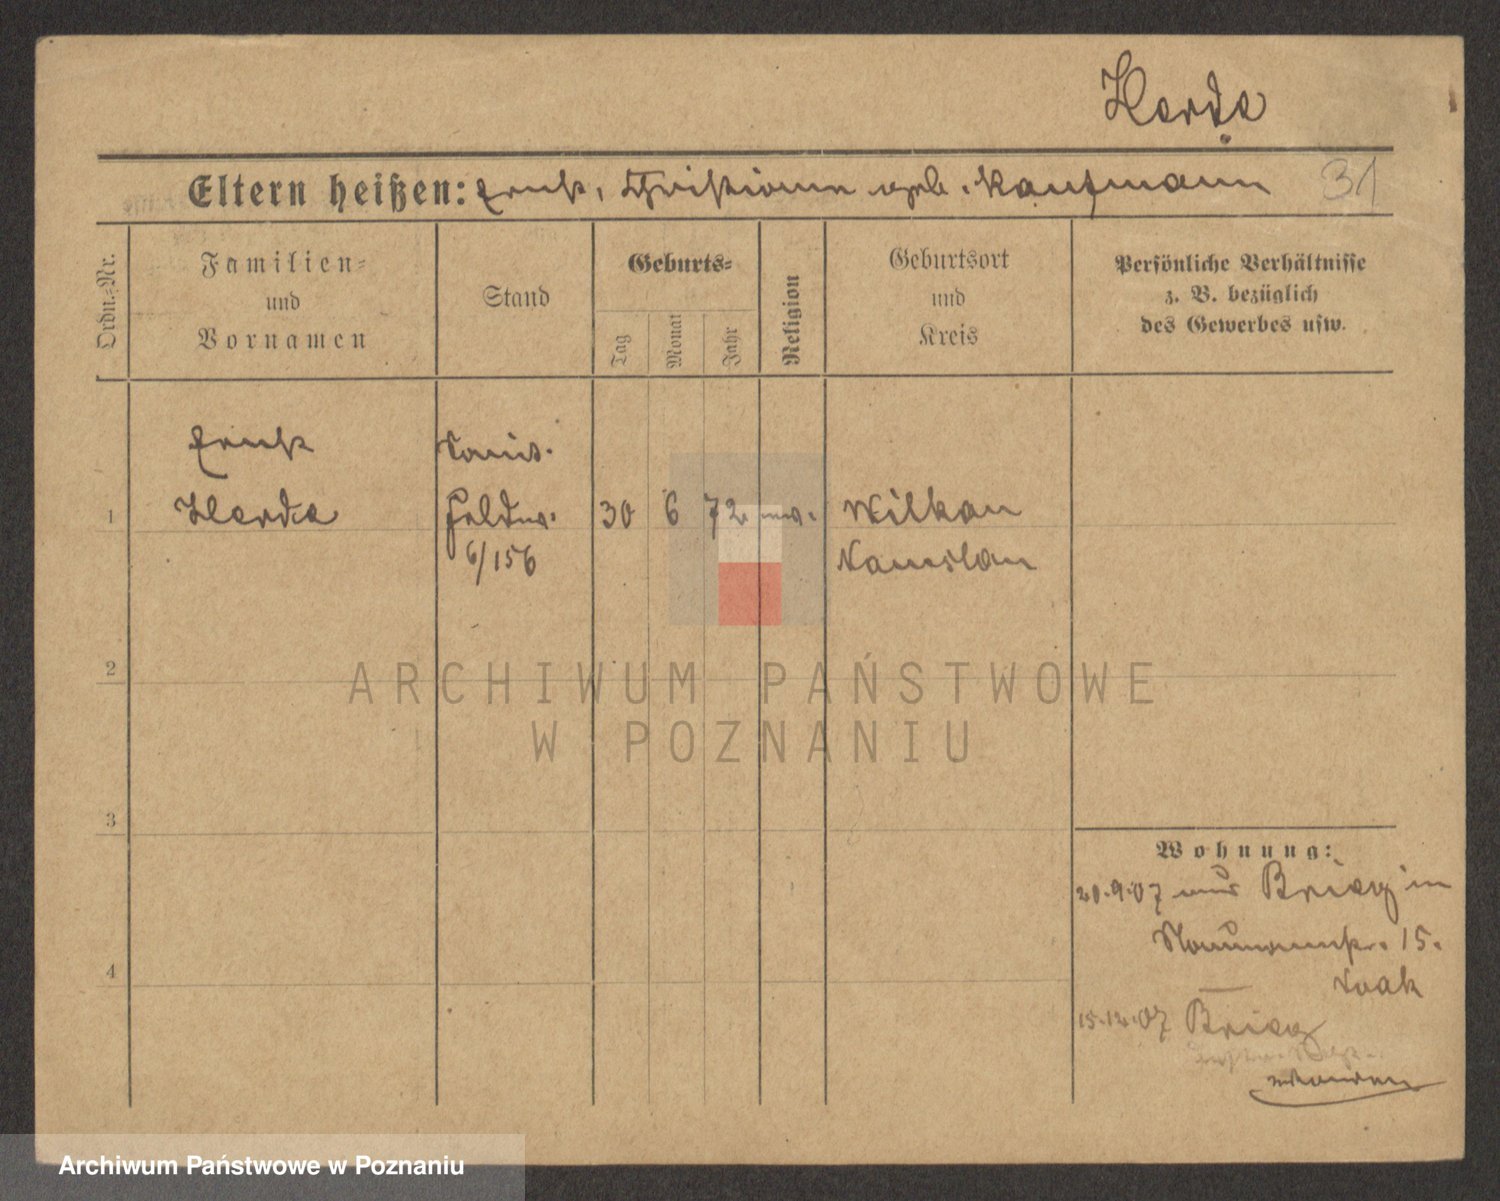 Herda
Eltern heißen: Ernst, Christiane geb. Kaufmann 31
Ordn.-Nr.
Familien-
und
Vornamen
Stand
Geburts-
Tag
Monat
Jahr
Religion
Geburtsort
und
Kreis
Persönliche Verhältnisse
z. B. bezüglich
des Gewerbes usw.
Ernst
1 Herda
Feldw.
6/156
30 6 72 ev.
Wilkau
Namslau
2
3
4
Wohnung:
20.9.07 aus Brieg in
15.
15.12.07 Brieg
ARCHIWUM PAŃSTWOWE
W POZNANIU
Archiwum Państwowe w Poznaniu